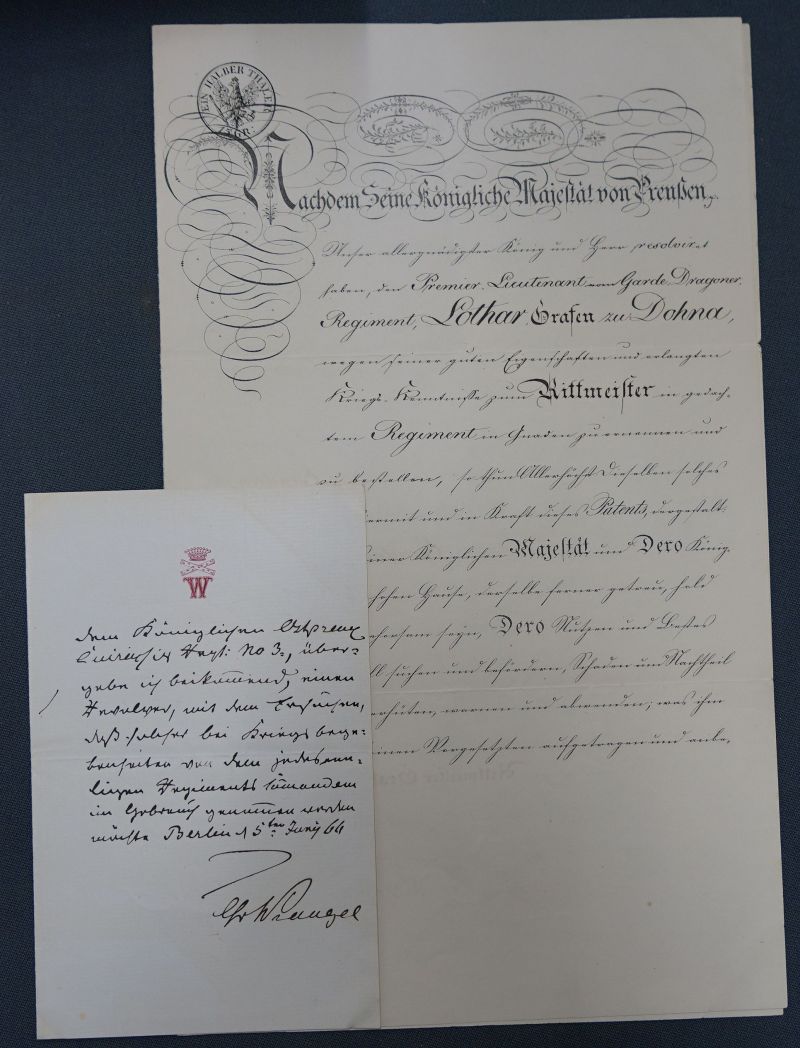 EIN HALBER THALER
Nachdem Seine Königliche Majestät von Preußen,
Unser allergnädigster König und Herr resolviret
haben, den Premier-Lieutenant vom Garde-Dragoner-
Regiment, Lothar, Grafen zu Dohna,
wegen seiner guten Eigenschaften und erlangten
Kriegs-Kenntnisse zum Rittmeister in gedach-
tem Regiment in Gnaden zu ernennen und
zu bestellen, so thun Allerhöchst Dieselben solches
ermit und in Kraft dieses Patents, dergestalt
einer Königlichen Majestät und Dero König-
hohen Hause, derselbe ferner getreu, hold
ehorsam seyn, Dero Nutzen und Bestes
ll suchen und befördern, Schaden und Nachtheil
erhüten, warnen und abwenden; was ihm
einen Vorgesetzten aufgetragen und anbe-
W
dem Königlichen Ostpreuß
Cuirassier Regt: No 3., über-
gebe ich beikommend, einen
Revolver, mit dem Ersuchen,
daß solcher bei Kriegs bege-
benheiten von dem jedesma-
ligen Regiments Commandeur
im Gebrauch genommen werden
möchte Berlin d 5ten Juny 66
Wrangel